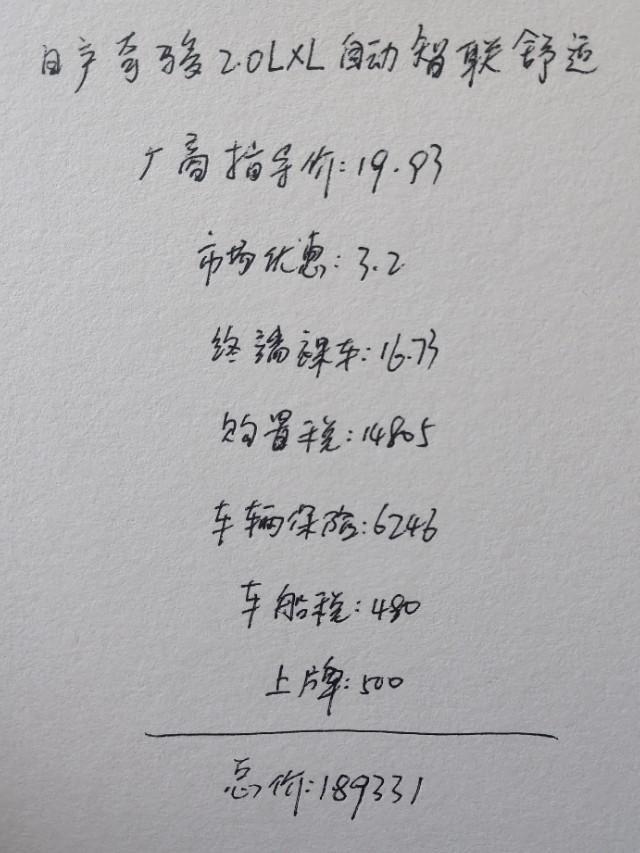 日产奇骏2.0LXL自动智联舒适
厂商指导价:19.93
市场优惠:3.2
终端裸车:16.73
购置税:14805
车辆保险:6246
车船税:480
上牌:500
总价:189331